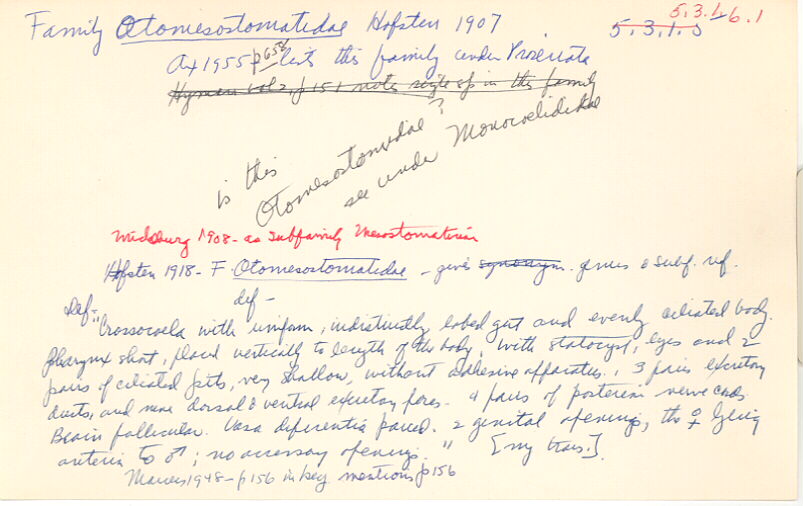 Family Otomesostomatidae Hofsten 1907
5.3.1.5
5.3.1-6.1
Ax 1955 p 658 lists this family under Proseriata
Hyman vol 2, p 151 notes single sp in this family
is this
Otomesostomidae?
see under Monocoelididae
Midelburg 1908 - as Subfamily Mesostomatinae
Hofsten 1918 - F Otomesostomatidae - gives synonyms. genus & subf. ref.
def -
Def - "Crossocoela with uniform, indistinctly lobed gut and evenly ciliated body.
Pharynx short, placed vertically to length of the body, with statocyst, eyes and 2
pairs of ciliated pits, very shallow, without adhesive apparatus. 3 pairs excretory
ducts, and more dorsal & ventral excretory pores. 4 pairs of posterior nerve cords.
Brain follicular. Vasa deferentia paired. 2 genital openings, the ♀ lying
anterior to ♂; no accessory openings." [my trans.].
Marcus 1948 - p 156 in key mentions p 156